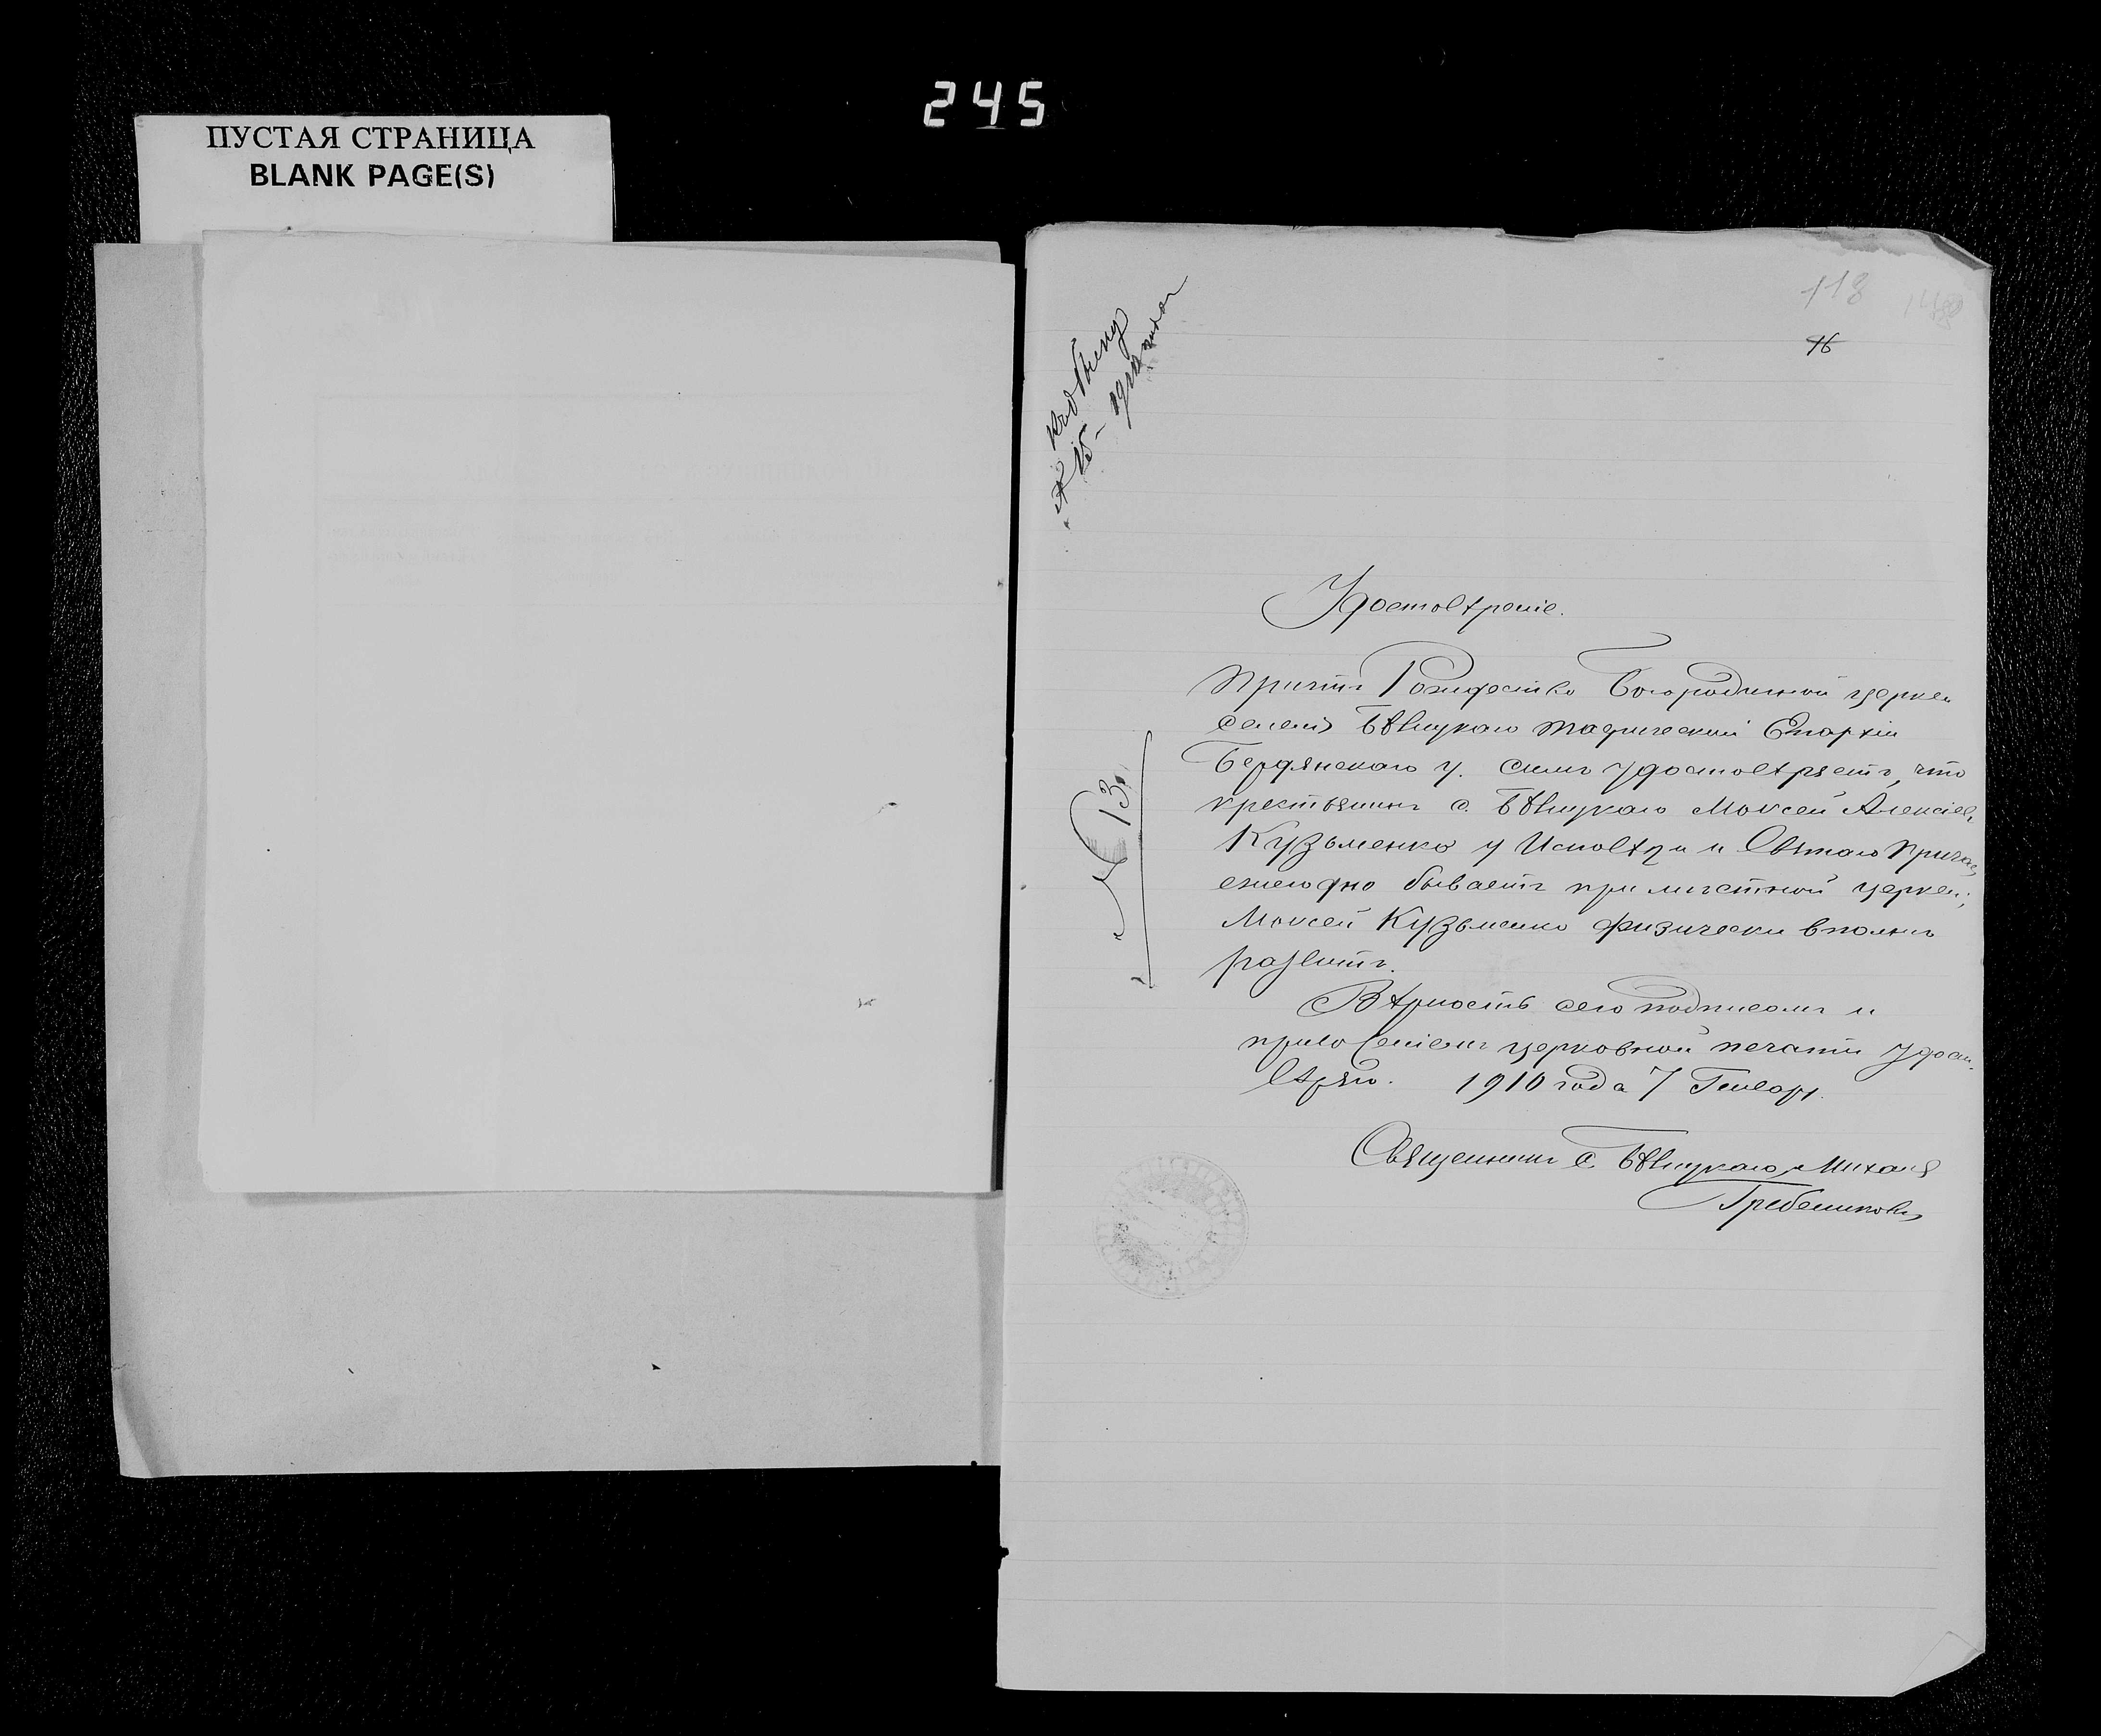 245
ПУСТАЯ СТРАНИЦА
BLANK PAGE(S)
118
16
Удостовѣреніе.
Причтъ Рождество Богородичной церкви
селенія Таврической Епархіи
Бердянскаго у. симъ удостовѣряетъ, что
крестьянинъ с. Моксей Алексіев
Кузьменко у Исповѣди и Святаго Прича
ежегодно бываетъ при мѣстной церкви;
Моксей Кузьменко физически вполнѣ
развитъ.
Вѣрность сего подписомъ и
приложеніемъ церковной печати удост.
вѣряю. 1910 года 7 Генваря.
Священникъ с. Михаил
Гребенниковъ
№ 13.